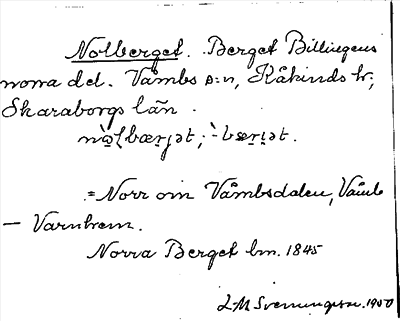 Nolberget. Berget Billingens
norra del. Våmbs s:n, Kåkinds hr;
Skaraborgs län.
nò̱lbærjət; -bærjət.
= Norr om Våmbsdalen, Våmb
— Varnhem.
Norra Berget lm. 1845
1950